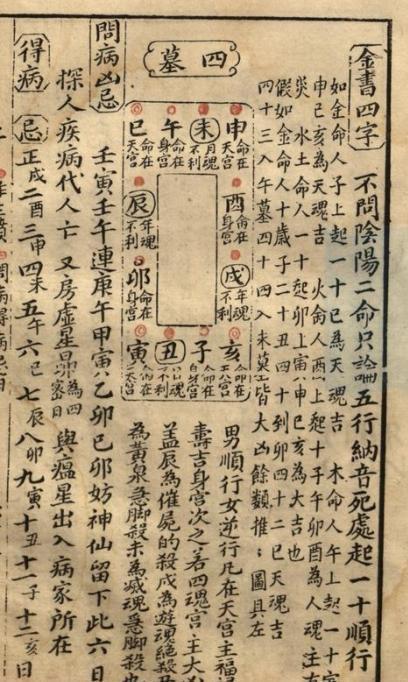 金書四字
不問陰陽二命只論五行納音死處起一十順行
如金命人子上起一十巳為天魂吉 木命人午上起一十寅
申巳亥為天魂吉 火命人酉上起十子午卯酉為人魂
炎水土命人一十起卯上寅申巳亥為大吉也
假如金命人十歲子二十丑四十到卯四十二巳天魂吉
四十三入午墓四十四入未墓皆大凶餘類推圖具左
四墓
申命在天宮
未月魂不利
午命在
巳命在天宮
酉命在身宮
辰年魂不利
戌年魂不利
卯命在身宮
亥命在天宮
子命在身宮
丑魂不利
寅命在天宮
男順行女逆行凡在天宮主福
壽吉身宮次之若四魂宮主大
蓋辰為催屍的殺戌為遊魂絕殺
為黃泉急脚殺未為滅魂急脚殺
問病凶忌
壬寅壬午連庚午甲寅乙卯巳卯妨神仙留下此六日
探人疾病代人亡 又房虛星昴為四密日 與瘟星出入病家所在
得病
忌
正戌二酉三申四未五午六巳七辰八卯九寅十丑十一子十二亥日